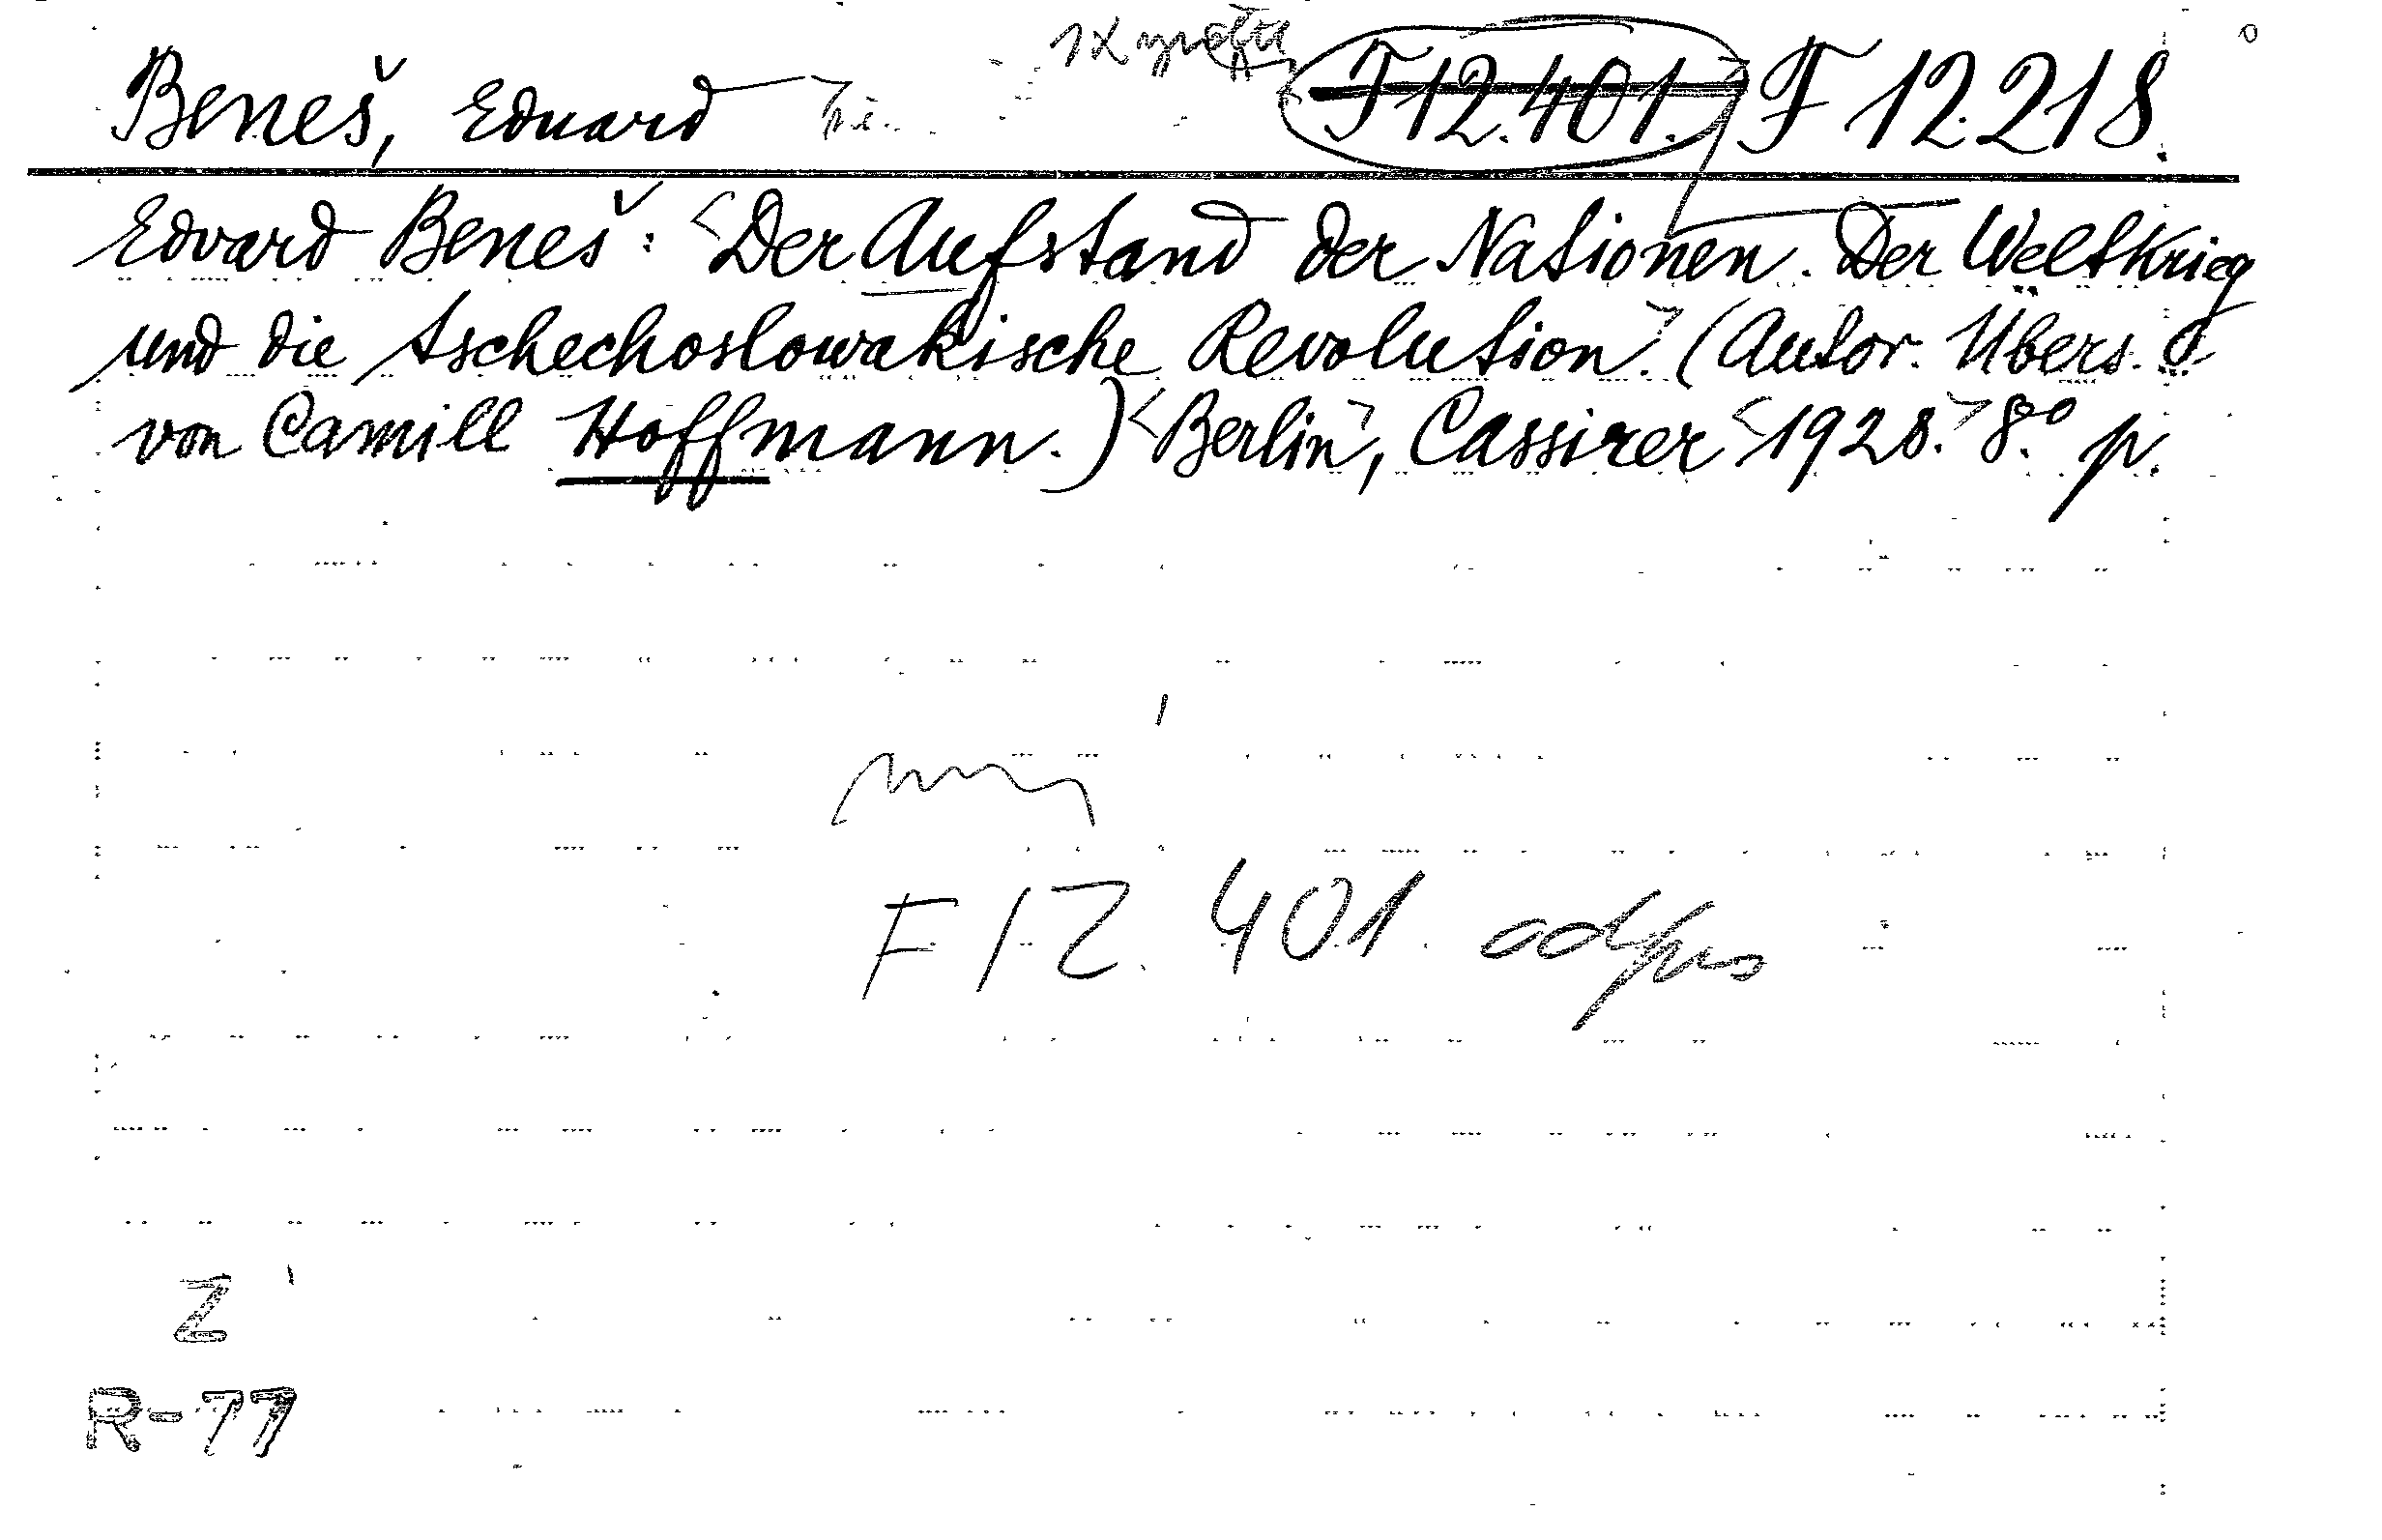 Beneš, Eduard F 12.401. F 12.218.
Edvard Beneš: <Der Aufstand der Nationen. Der Weltkrieg
und die tschechoslowakische Revolution.> (Autor. Übers.
von Camill Hoffmann.) <Berlin>, Cassirer <1928.> 8.° p.
F 12.401 odpis
Z
R-77